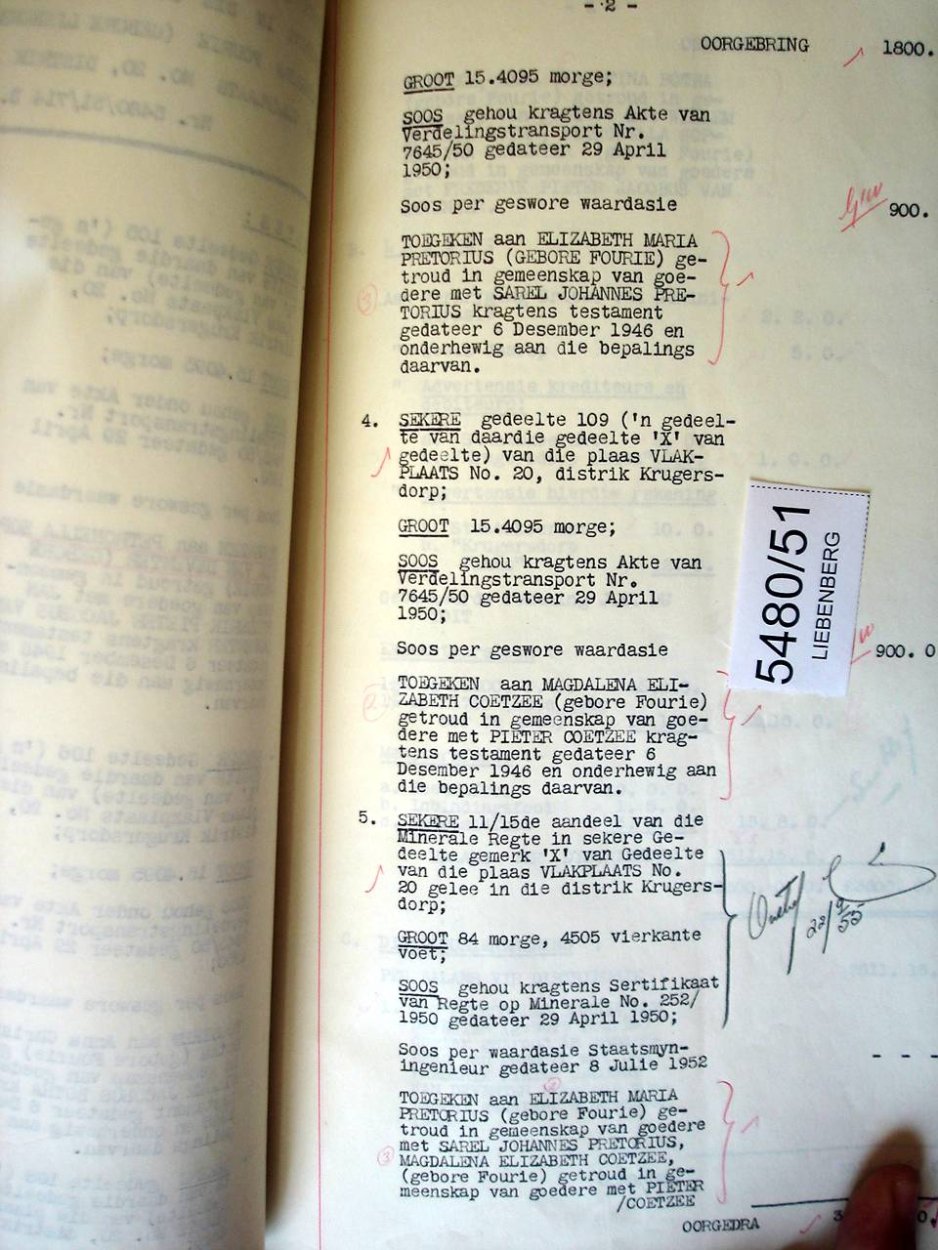 - 2 -
OORGEBRING 1800.
GROOT 15.4095 morge;
SOOS gehou kragtens Akte van
Verdelingstransport Nr.
7645/50 gedateer 29 April
1950;
Soos per geswore waardasie 900.
TOEGEKEN aan ELIZABETH MARIA
PRETORIUS (GEBORE FOURIE) ge-
troud in gemeenskap van goe-
dere met SAREL JOHANNES PRE-
TORIUS kragtens testament
gedateer 6 Desember 1946 en
onderhewig aan die bepalings
daarvan.
4. SEKERE gedeelte 109 ('n gedeel-
te van daardie gedeelte 'X' van
gedeelte) van die plaas VLAK-
PLAATS No. 20, distrik Krugers-
dorp;
GROOT 15.4095 morge;
SOOS gehou kragtens Akte van
Verdelingstransport Nr.
7645/50 gedateer 29 April
1950;
Soos per geswore waardasie 900. 0
TOEGEKEN aan MAGDALENA ELI-
ZABETH COETZEE (gebore Fourie)
getroud in gemeenskap van goe-
dere met PIETER COETZEE krag-
tens testament gedateer 6
Desember 1946 en onderhewig aan
die bepalings daarvan.
5480/51
LIEBENBERG
5. SEKERE 11/15de aandeel van die
Minerale Regte in sekere Ge-
deelte gemerk 'X' van Gedeelte
van die plaas VLAKPLAATS No.
20 gelee in die distrik Krugers-
dorp;
GROOT 84 morge, 4505 vierkante
voet;
SOOS gehou kragtens Sertifikaat
van Regte op Minerale No. 252/
1950 gedateer 29 April 1950;
22/9/55
Soos per waardasie Staatsmyn-
ingenieur gedateer 8 Julie 1952 - - -
TOEGEKEN aan ELIZABETH MARIA
PRETORIUS (gebore Fourie) ge-
troud in gemeenskap van goedere
met SAREL JOHANNES PRETORIUS,
MAGDALENA ELIZABETH COETZEE,
(gebore Fourie) getroud in ge-
meenskap van goedere met PIETER
/COETZEE
OORGEDRA